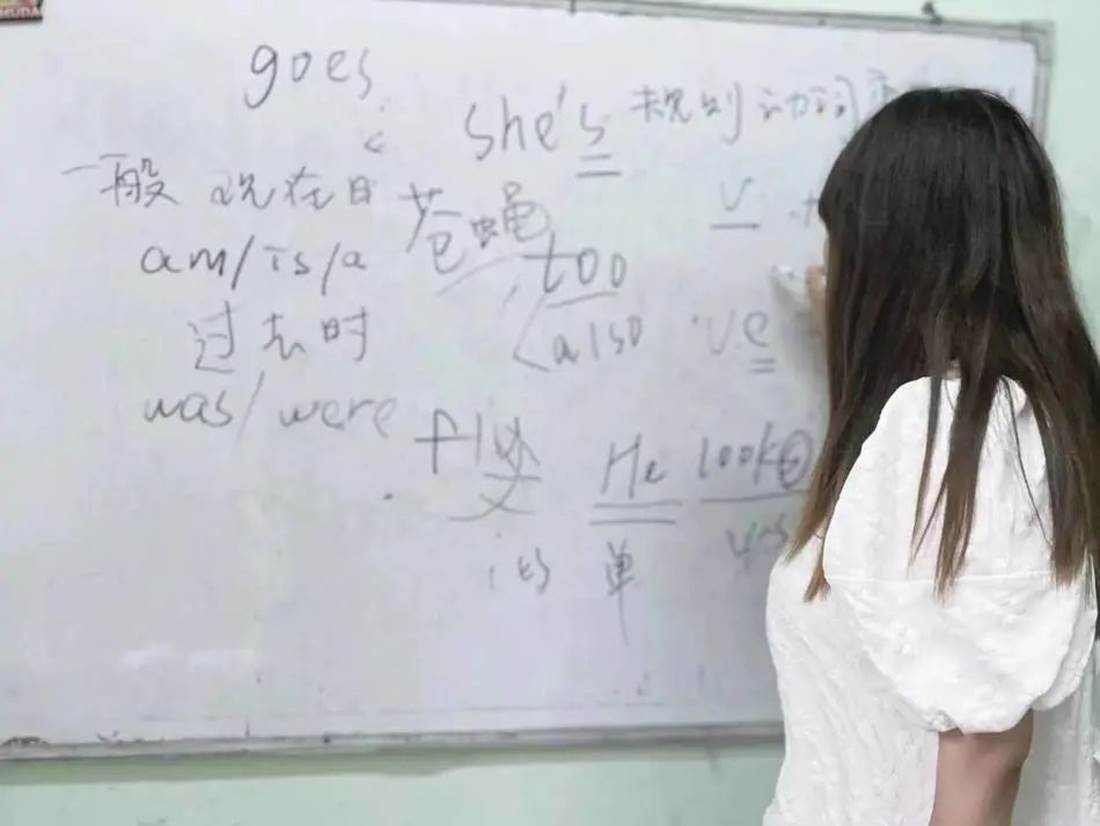 goes
she's 规则动词
一般现在时
苍蝇
v
am/is/a
too
过去时
also
ve
was/were
fly
He looks
ies
单